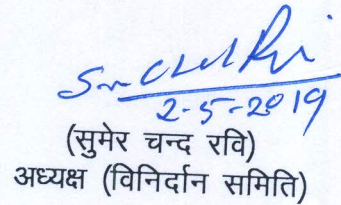 2-5-2019
(सुमेर चन्द रवि)
अध्यक्ष (विनिर्दान समिति)